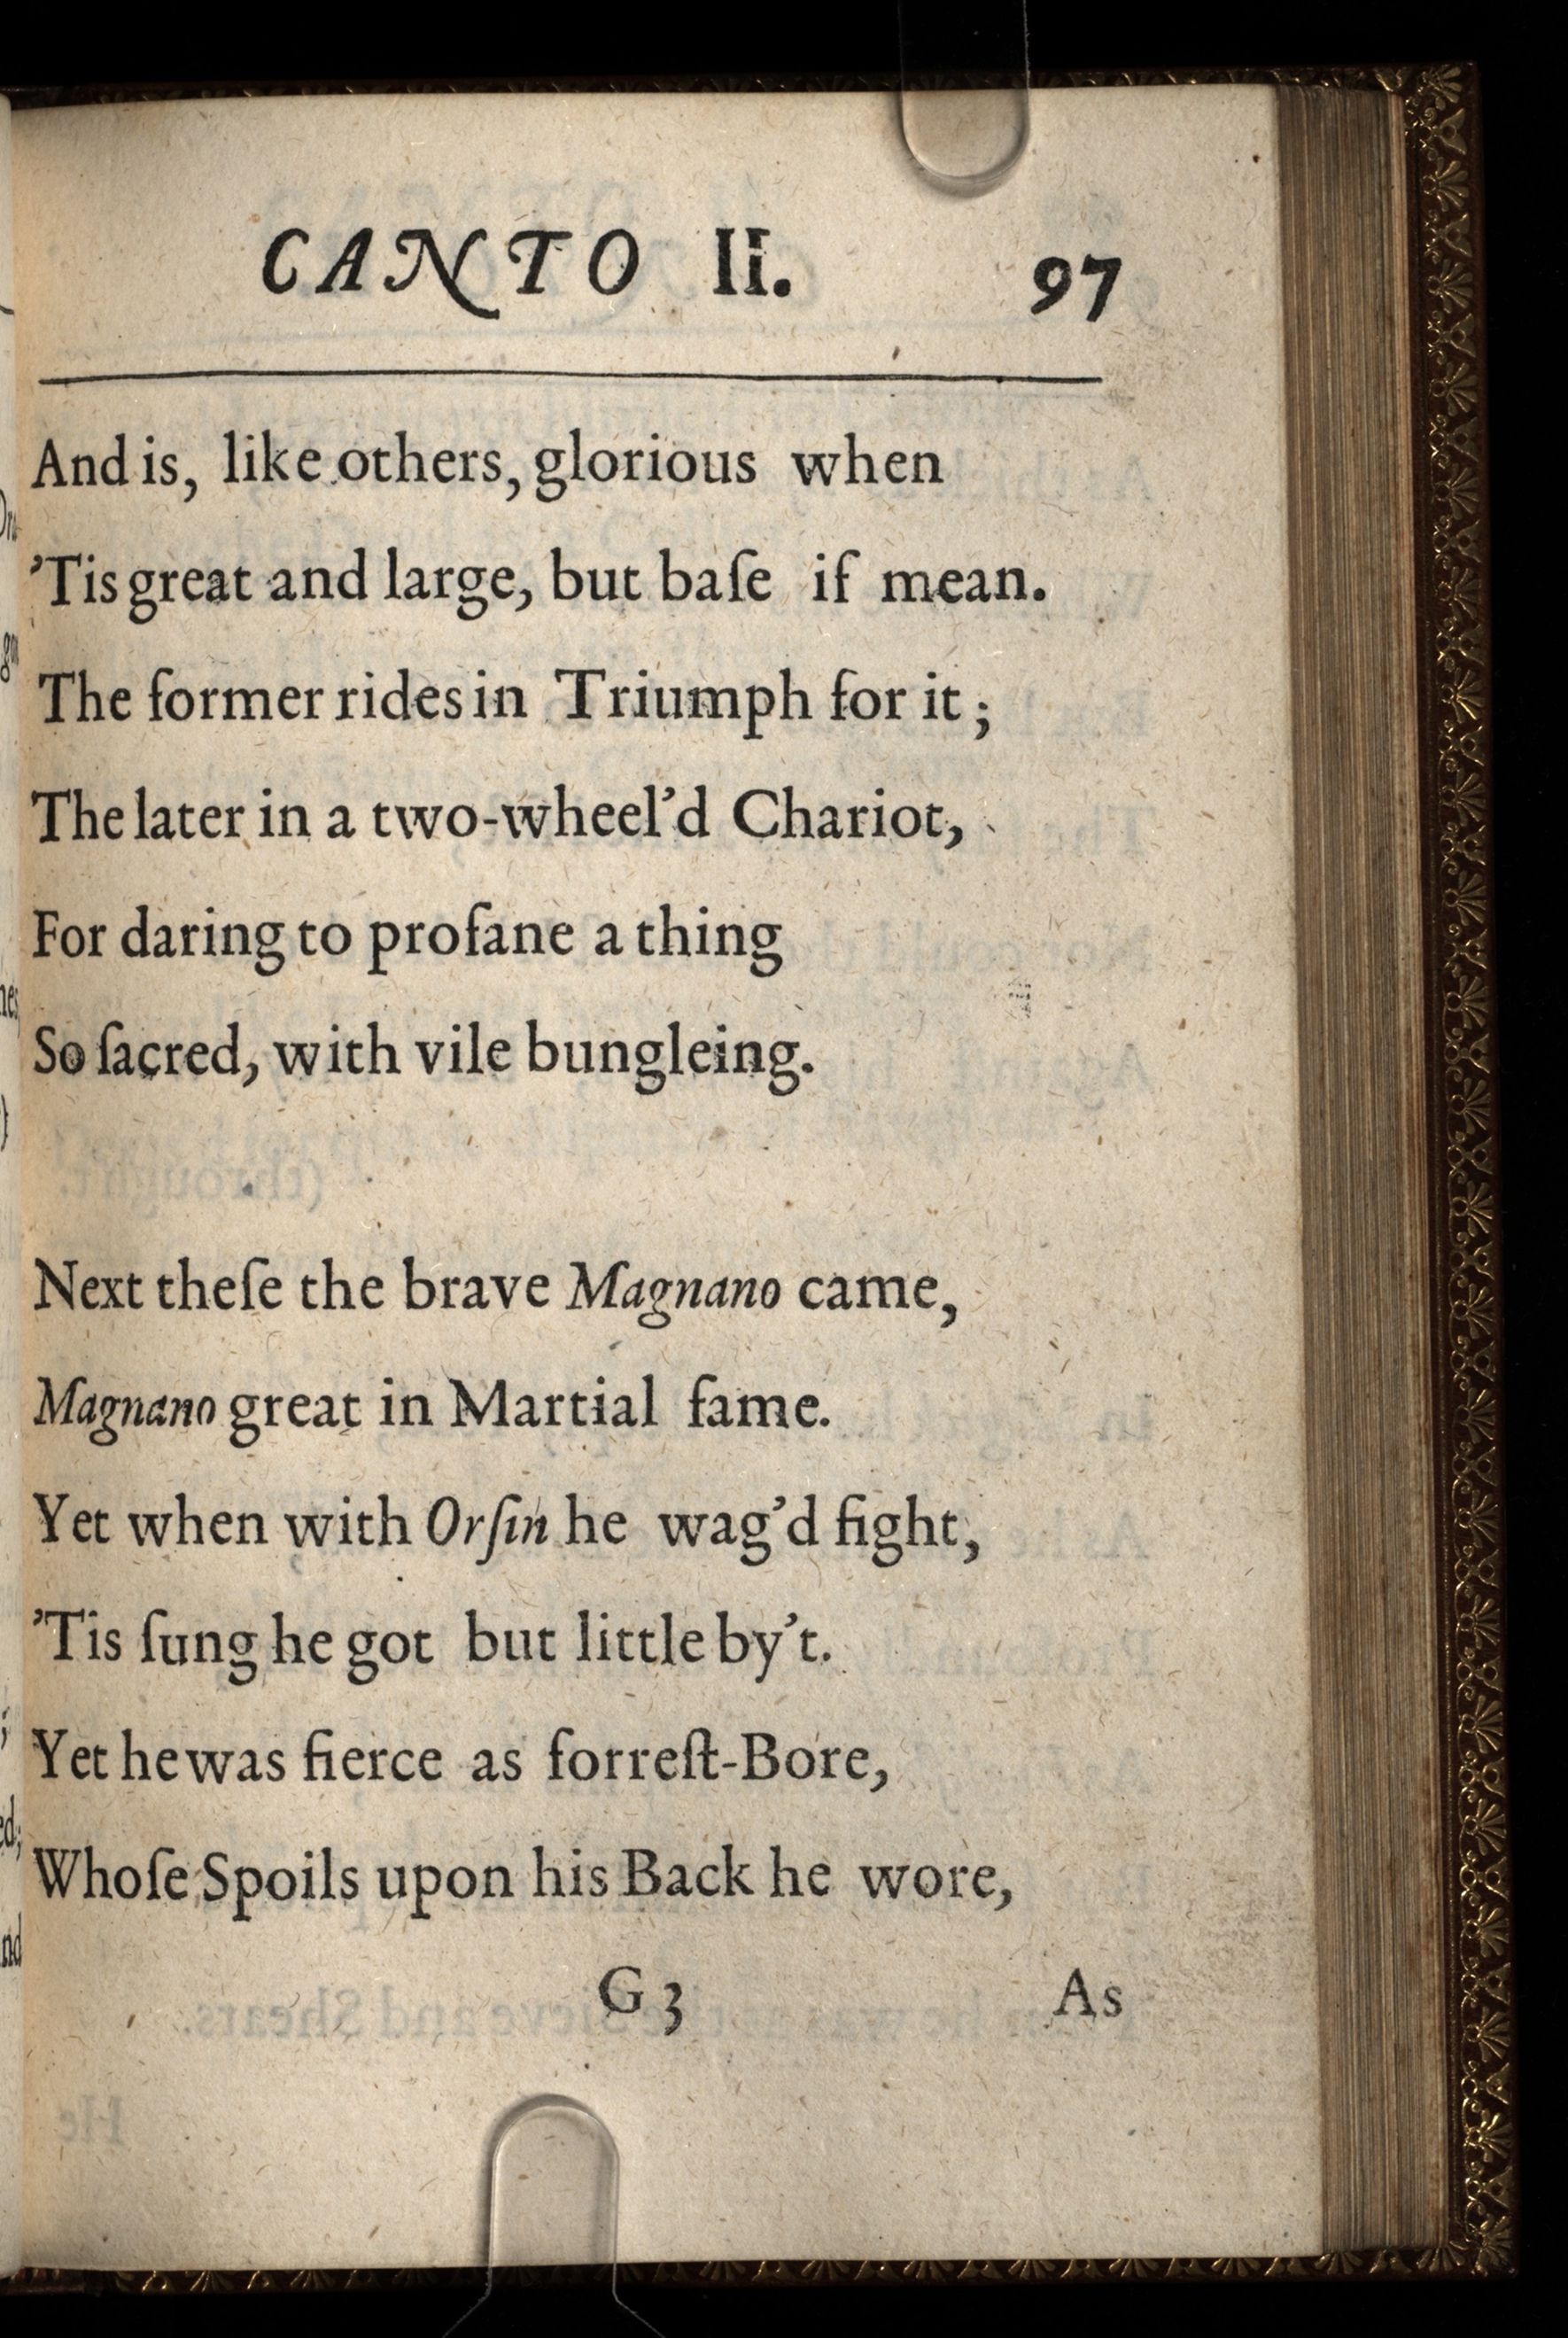 CANTO II. 97
And is, like others, glorious when
’Tis great and large, but baſe if mean.
The former rides in Triumph for it;
The later in a two-wheel’d Chariot,
For daring to profane a thing
So ſacred, with vile bungleing.
Next theſe the brave Magnano came,
Magnano great in Martial fame.
Yet when with Orſin he wag’d fight,
’Tis ſung he got but little by’t.
Yet he was fierce as forreſt-Bore,
Whoſe Spoils upon his Back he wore,
G 3 As